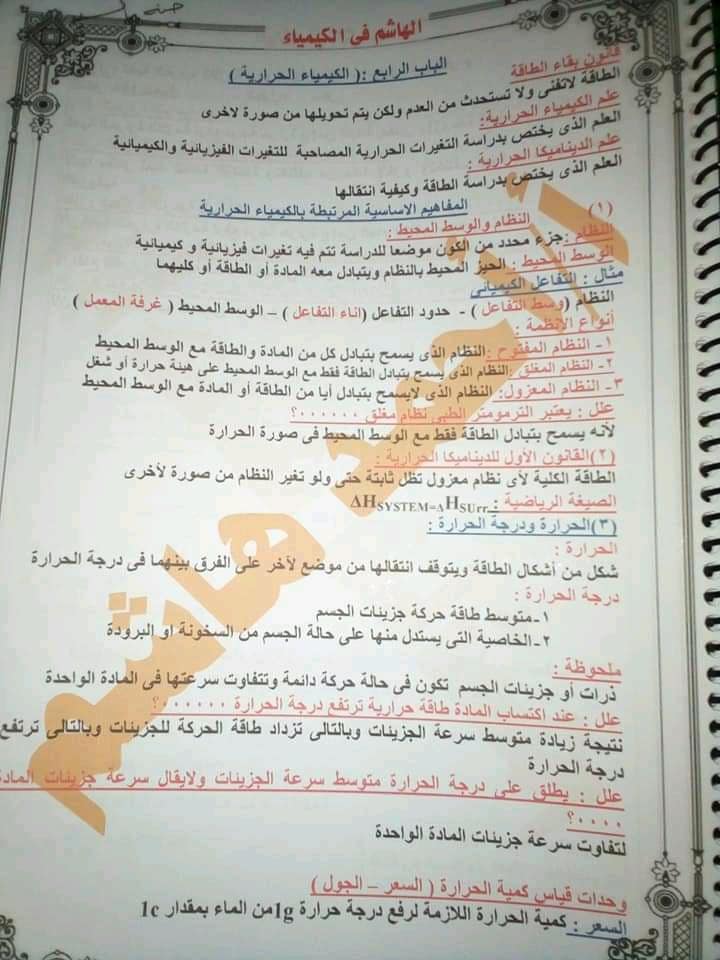 الهاشم فى الكيمياء
الباب الرابع :( الكيمياء الحرارية )
قانون بقاء الطاقة
الطاقة لاتفنى ولا تستحدث من العدم ولكن يتم تحويلها من صورة لاخرى
علم الكيمياء الحرارية:
العلم الذى يختص بدراسة التغيرات الحرارية المصاحبة للتغيرات الفيزيائية والكيميائية
علم الديناميكا الحرارية :
العلم الذى يختص بدراسة الطاقة وكيفية انتقالها
المفاهيم الاساسية المرتبطة بالكيمياء الحرارية
(١) النظام والوسط المحيط :
النظام :جزء محدد من الكون موضعا للدراسة تتم فيه تغيرات فيزيائية و كيميائية
الوسط المحيط : الحيز المحيط بالنظام ويتبادل معه المادة أو الطاقة أو كليهما
مثال : التفاعل الكيميائى
النظام (وسط التفاعل ) - حدود التفاعل (اناء التفاعل ) – الوسط المحيط ( غرفة المعمل )
أنواع الانظمة :
١- النظام المفتوح :النظام الذى يسمح بتبادل كل من المادة والطاقة مع الوسط المحيط
٢- النظام المغلق :النظام الذى يسمح بتبادل الطاقة فقط مع الوسط المحيط على هيئة حرارة أو شغل
٣- النظام المعزول: النظام الذى لايسمح بتبادل أيا من الطاقة أو المادة مع الوسط المحيط
علل : يعتبر الترمومتر الطبى نظام مغلق ٠٠٠٠٠٠؟
لأنه يسمح بتبادل الطاقة فقط مع الوسط المحيط فى صورة الحرارة
(٢)القانون الأول للديناميكا الحرارية :
الطاقة الكلية لأى نظام معزول تظل ثابتة حتى ولو تغير النظام من صورة لأخرى
الصيغة الرياضية : ΔHSYSTEM=ΔHSUrr
(٣)الحرارة ودرجة الحرارة :
الحرارة :
شكل من أشكال الطاقة ويتوقف انتقالها من موضع لآخر على الفرق بينهما فى درجة الحرارة
درجة الحرارة :
١-متوسط طاقة حركة جزيئات الجسم
٢-الخاصية التى يستدل منها على حالة الجسم من السخونة او البرودة
ملحوظة :
ذرات أو جزيئات الجسم تكون فى حالة حركة دائمة وتتفاوت سرعتها فى المادة الواحدة
علل : عند اكتساب المادة طاقة حرارية ترتفع درجة الحرارة ٠٠٠٠٠٠؟
نتيجة زيادة متوسط سرعة الجزيئات وبالتالى تزداد طاقة الحركة للجزيئات وبالتالى ترتفع
درجة الحرارة
علل : يطلق على درجة الحرارة متوسط سرعة الجزيئات ولايقال سرعة جزيئات المادة
٠٠٠٠؟
لتفاوت سرعة جزيئات المادة الواحدة
وحدات قياس كمية الحرارة ( السعر – الجول )
السعر : كمية الحرارة اللازمة لرفع درجة حرارة 1gمن الماء بمقدار 1c
أ/أحمد هاشم